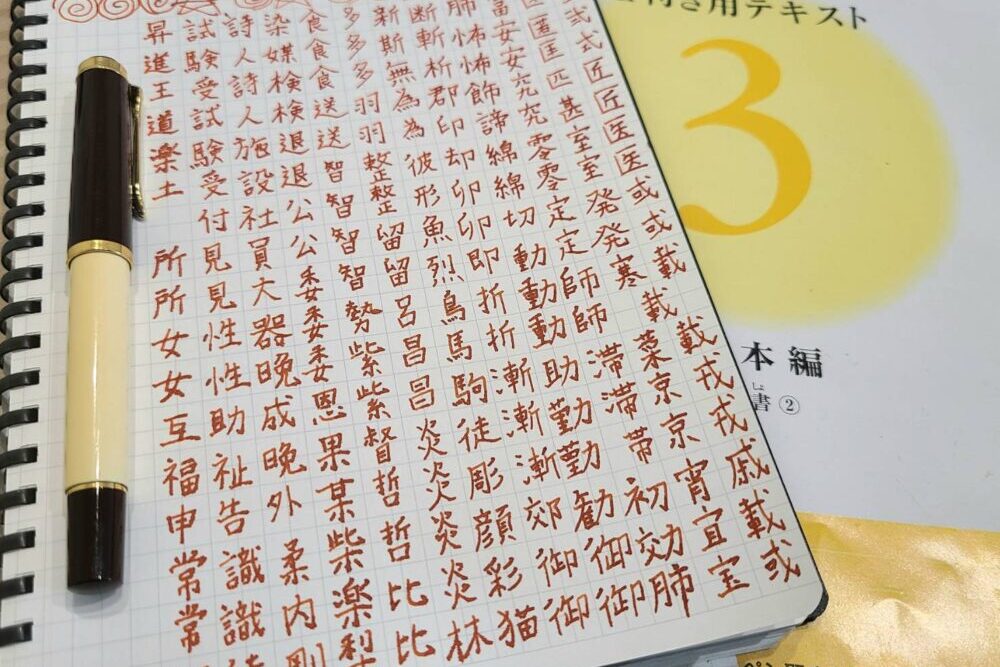 付き用テキスト
3
本編
しょ
書②
式式匠匠医医或或載載載戎戎戚載或
匿匡匹甚室室発発寒菜京京宵宜宝
富安安究究零零定定師師滞滞帯初効肺
肺怖怖飾諦綿綿切動動動助勤勤勧御御
断斬析郡印却卯卯即折折漸漸漸郊御御
新斯無為為彼形魚烈鳥馬駒徒彫顔彩猫
多多多羽羽整整留留呂昌昌炎炎炎炎林
食食食送送智智智智勢紫紫督哲哲比比
染媒検検退退公公委委委恩果某柴楽利
詩人詩人施設社員大器晩成晩外柔内剛
試験受試験受付見見性性助祉告識識
昇進王道楽土 所所女女互福申常常